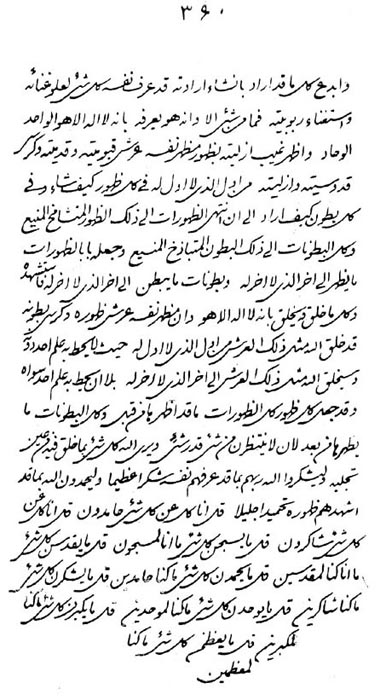 ٣۶٠
وابدع كل ما قد اراد بانشاء ارادته قد عرف نفسه كل شئ لعلو غنائه
واستغناء ربوبيته فما من شئ الا وانه هو يعرفه بانه لا اله الا هو الواحد
الوحاد واظهر غيب ازليته بظهور مظهر نفسه عرش قيوميته وقدميته وكرسی
قدوسيته وازاليته من اول الذی لا اول له فی كل ظهور كيف شاء وفی
كل بطون كيف اراد الی ان تنتهی الظهورات الی ذلك الظهور المتشامخ المنيع
وكل البطونات الی ذلك البطون المتباذخ المنيع وجعله بالظهورات
ما يظهر الی اخر الذی لا اخر له وبطونات ما يبطن الی اخر الذی لا اخر له فاستشهد
وكل ما خلق ويخلق بانه لا اله الا هو وان مظهر نفسه عرش ظهوره وكرسی بطونه
قد خلق الله مثل ذلك العرش من اول الذی لا اول له حيث لا يحيط به علم احد دونه
وسيخلق الله مثل ذلك العرش الی اخر الذی لا اخر له بلا ان يحيط به علم احد سواه
وقد جعل كل ظهور كل الظهورات ما قد اظهر من قبل وكل البطونات ما
يظهر من بعد لان لا ينتظرن من شئ قدر شئ ويری الله كل شئ بما خلق فيه عين
تجليه وليشكروا الله ربهم بما قد عرفهم نفسه شكرا عظيما وليحمدون الله بما قد
اشهدهم ظهوره تحميدا جليلا قل انا كل عن كل شئ حامدون قل انا كل عن
كل شئ شاكرون قل ما يسبحن كل شئ ما انا كنا لمسبحون قل ما يقدسن كل شئ
ما انا كنا لمقدسين قل ما يحمدن كل شئ ما كنا حامدين قل ما يشكرن كل شئ
ما كنا شاكرين قل ما يوحدن كل شئ ما كنا لموحدين قل ما يكبرن كل شئ ما كنا
لمكبرين قل ما يعظمن كل شئ ما كنا
لمعظمين